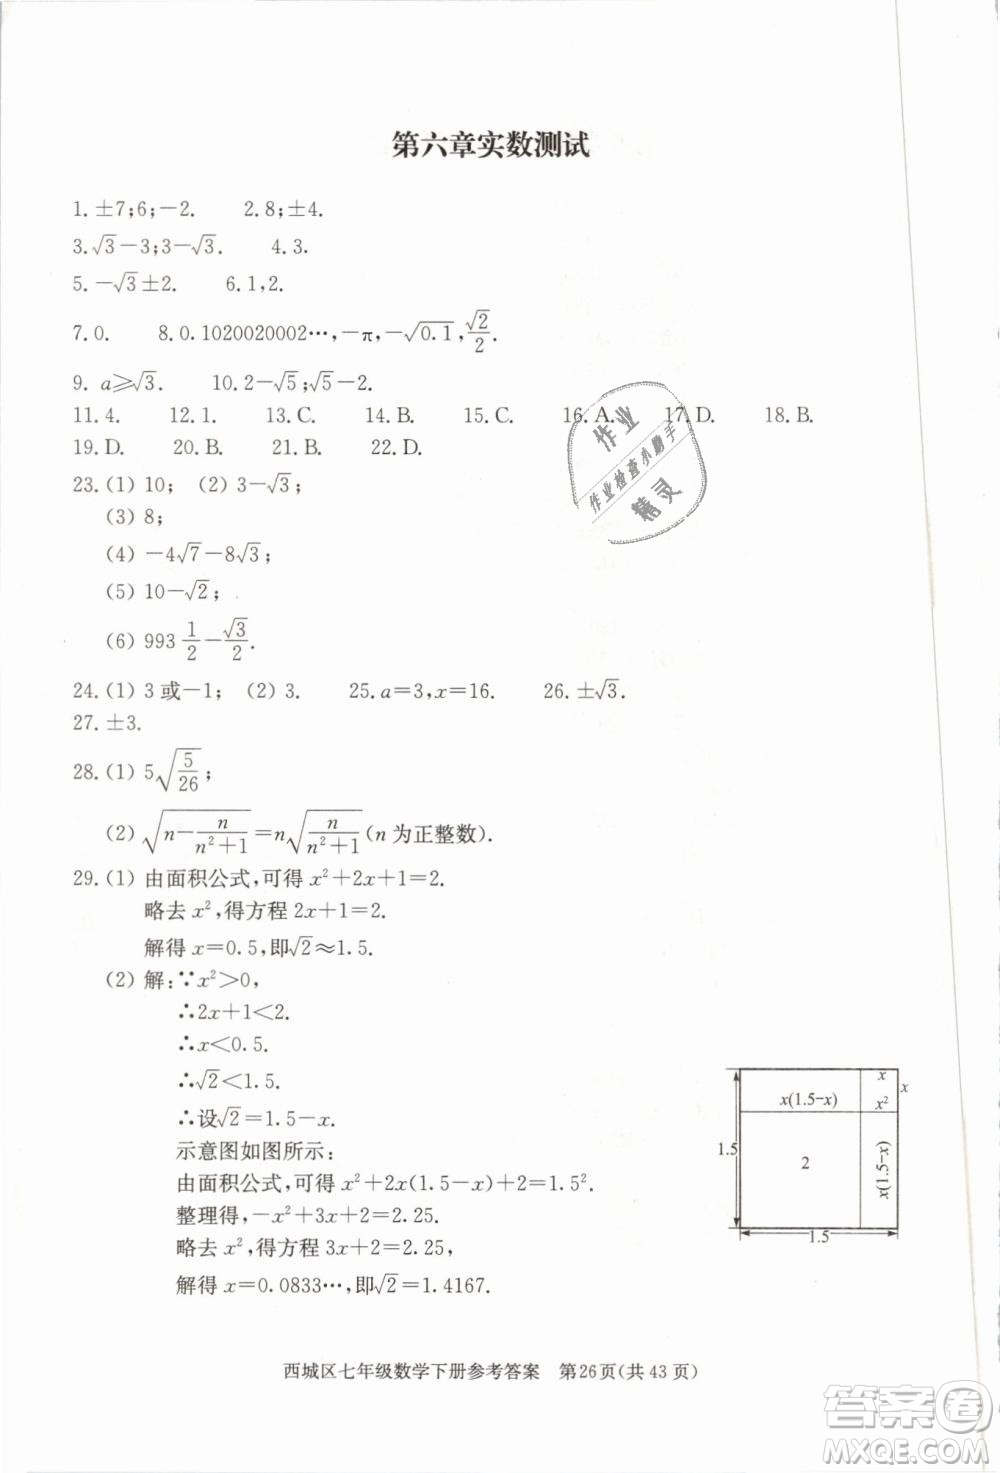 第六章实数测试
1.±7;6;−2. 2.8;±4.
3.√3−3;3−√3. 4.3.
5.−√3±2. 6.1,2.
7.0. 8.0.1020020002⋯,−π,−√0.1,√2/2.
9. a⩾√3. 10.2−√5;√5−2.
11.4. 12.1. 13.C. 14.B. 15.C. 16.A. 17.D. 18.B.
19.D. 20.B. 21.B. 22.D.
23.(1) 10; (2) 3−√3;
(3) 8;
(4) −4√7−8√3;
(5) 10−√2;
(6) 993 1/2−√3/2.
24.(1) 3或−1; (2) 3. 25.a=3,x=16. 26.±√3.
27.±3.
28.(1) 5√(5/26);
(2) √(n−n/(n²+1))=n√(n/(n²+1))(n为正整数).
29.(1) 由面积公式,可得 x²+2x+1=2.
略去 x²,得方程 2x+1=2.
解得 x=0.5,即√2≈1.5.
(2) 解:∵x²>0,
∴2x+1<2.
∴x<0.5.
∴√2<1.5.
∴设√2=1.5−x.
示意图如图所示:
由面积公式,可得 x²+2x(1.5−x)+2=1.5².
整理得,−x²+3x+2=2.25.
略去 x²,得方程 3x+2=2.25,
解得 x=0.0833⋯,即√2=1.4167.
x
x
x(1.5−x)
x²
1.5
2
x(1.5−x)
1.5
西城区七年级数学下册参考答案 第26页(共 43 页)
作业
作业检查小助手
精灵
答案卷
MXQE.COM